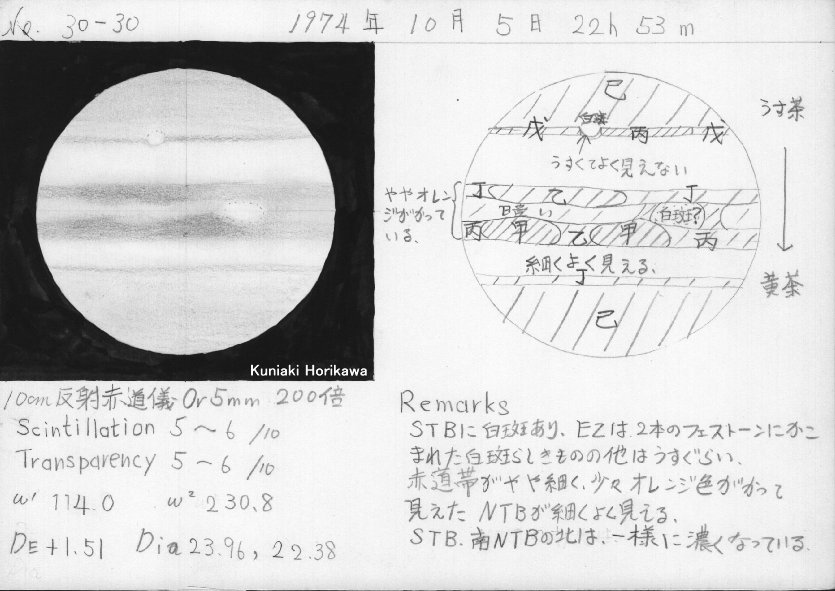 No. 30-30 1974年 10月 5日 22h 53m
己
白斑
戊 丙 戊
うす茶
うすくてよく見えない
ややオレン
ジがかって
いる、
丁 乙 丁
白斑?
丙 甲 乙 甲 丙
細くよく見える、
丁
黄茶
己
Kuniaki Horikawa
10cm反射赤道儀 Or5mm 200倍
Scintillation 5~6/10
Transparency 5~6/10
ω¹ 114.0 ω² 230.8
DE+1.51 Dia 23.96, 22.38
Remarks
STBに白斑あり、EZは2本のフェストーンにかこ
まれた白斑らしきものの他はうすぐらい、
赤道帯がやや細く、少々オレンジ色がかって
見えた NTBが細くよく見える、
STB.南NTBの北は、一様に濃くなっている.